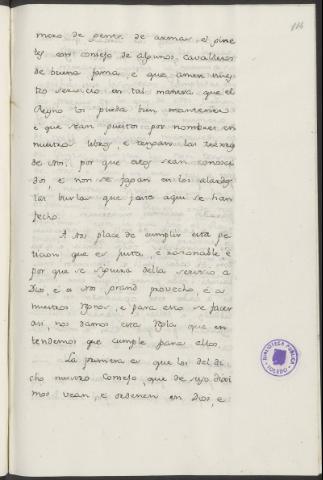 114
mero de gente de armas, e gine
tes con consejo de algunos cavalleros
de buena fama, e que amen nues
tro servicio en tal manera que el
Regno los pueda bien mantener
e que sean puestos por nombres en
nuestros libros, e tengan las tierras
de Nos, por que ellos sean conosci
dos, e non se fagan en los alardes
las burlas que fasta aqui se han
fecho.
A Nos place de cumplir esta pe
ticion que es justa, e razonable e
por que se siguira della servicio a
Dios, e a Nos grand provecho, e a
nuestros Regnos, e para esto se facer
asi, nos damos esta Regla que en
tendemos que cumple para ello.
La primera es que los del di
cho nuestro Consejo, que de suso dixi
mos vean, e ordenen en Dios, e
BIBLIOTECA PUBLICA
TOLEDO